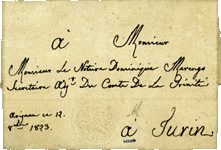 à Monsieur
Monsieur Le Notaire Dominique Marengo
Secretaire Aj.t Du Comte De La Trinité
ce 12.
8bre 1823.
à Turin